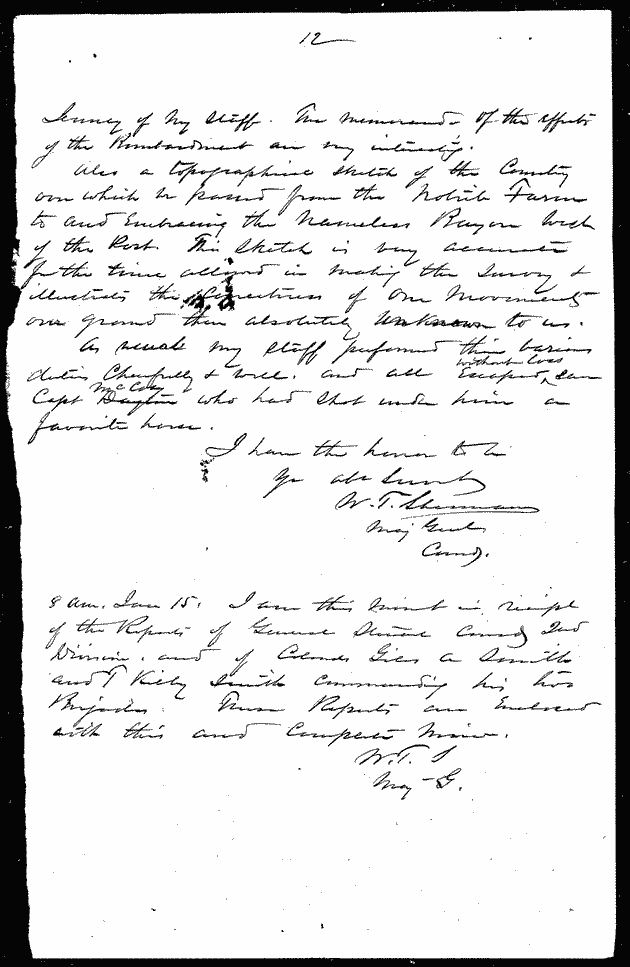 12
Jenney of my staff. The memoranda of the effects
of the Bombardment are very interesting.
Also a topographical sketch of the Country
over which we passed from the Notrib Farm
to and Embracing the Nameless Bayou West
of the Post. This Sketch is very accurate
for the time allowed in making the Survey &
illustrates the Correctness of our Movements
over ground then absolutely unknown to us.
As usual my staff performed their various
duties Cheerfully & well. and all Escaped without loss, save
Capt McCoy who had shot under him a
favorite horse.
I have the honor to be
Yr obt Servt
W. T. Sherman
Maj Genl
Comdg.
8 am. Jan 15. I am this moment in receipt
of the Reports of General Stuart Comdg 2nd
Division. and of Colonels Giles A Smith
and T Kilby Smith commanding his two
Brigades. These Reports are Enclosed
with this and Complete Mine.
W. T. S
Maj G.